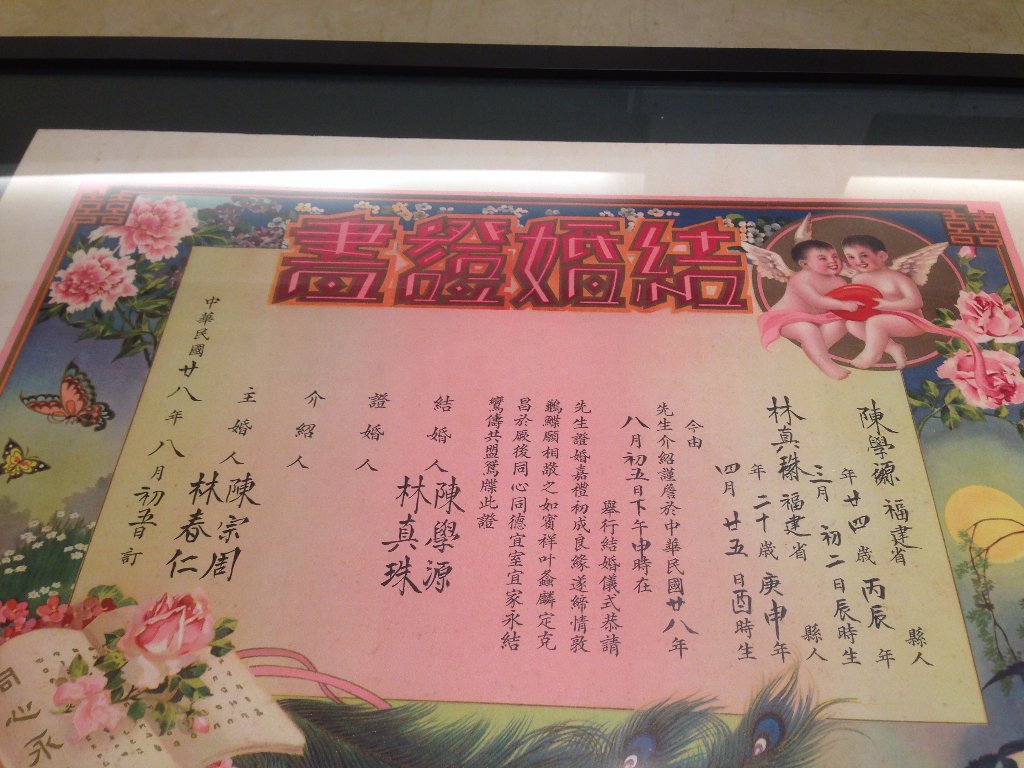 囍
囍
結婚證書
陳學源 福建省 縣人
年廿四歲丙辰年
三月初二日辰時生
林真珠 福建省 縣人
年二十歲庚申年
四月廿五日酉時生
今由
先生介紹謹詹於中華民國廿八年
八月初五日下午申時在
舉行結婚儀式恭請
先生證婚嘉禮初成良緣遂締情敦
鶼鰈願相敬之如賓祥叶螽麟定克
昌於厥後同心同德宜室宜家永結
鸞儔共盟鴛牒此證
結婚人 陳學源
林真珠
證婚人
介紹人
主婚人 陳宗周
林春仁
中華民國廿八年八月初五日訂
同心永